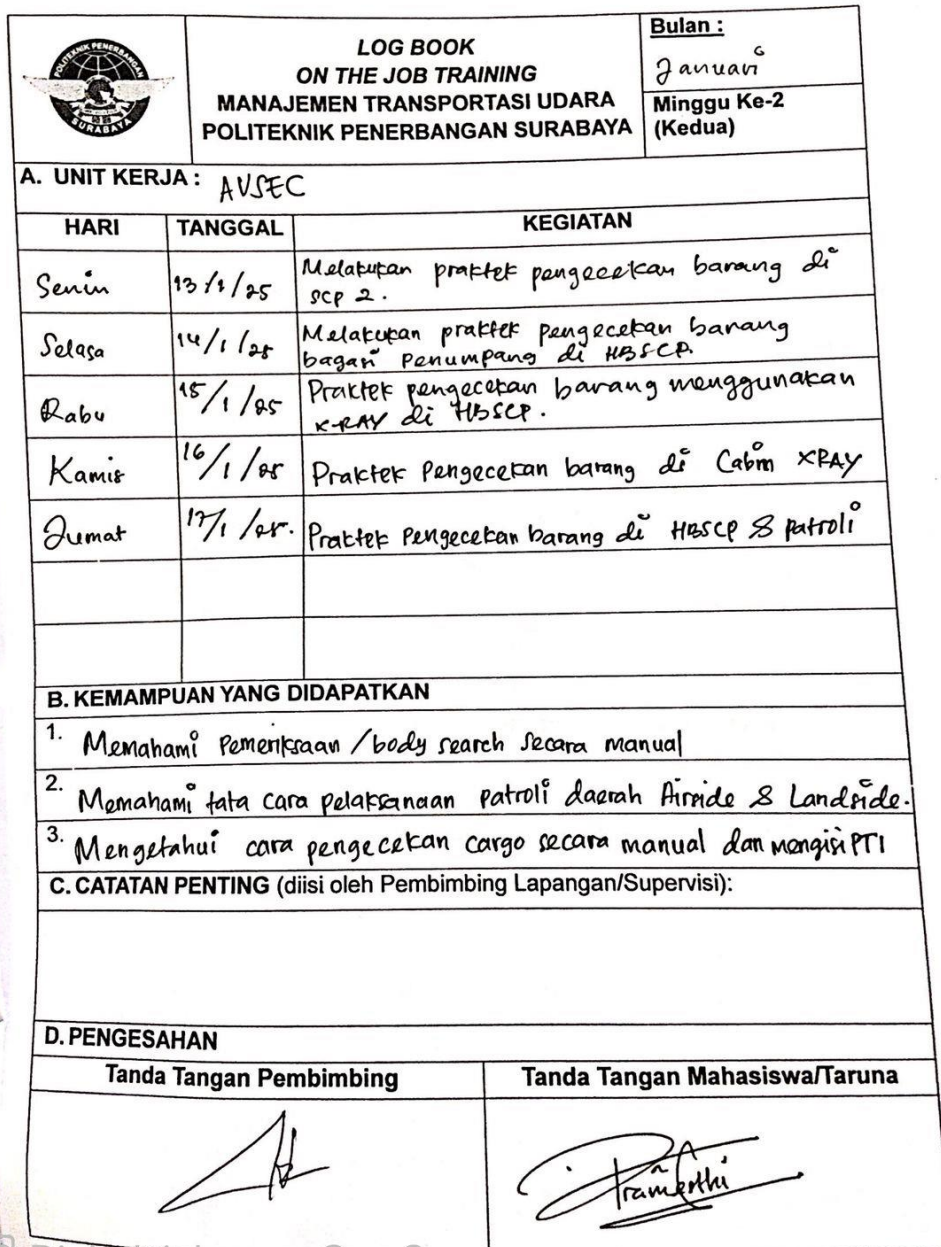 POLITEKNIK PENERBANGAN
SURABAYA
LOG BOOK
ON THE JOB TRAINING
MANAJEMEN TRANSPORTASI UDARA
POLITEKNIK PENERBANGAN SURABAYA
Bulan :
Januari
Minggu Ke-2
(Kedua)
A. UNIT KERJA : AVSEC
HARI TANGGAL KEGIATAN
Senin 13/1/25 Melakukan praktek pengecekan barang di
SCP 2.
Selasa 14/1/25 Melakukan praktek pengecekan barang
bagasi penumpang di HBSCP.
Rabu 15/1/25 Praktek pengecekan barang menggunakan
X-RAY di HBSCP.
Kamis 16/1/25 Praktek Pengecekan barang di Cabin XRAY
Jumat 17/1/25. Praktek Pengecekan barang di HBSCP & patroli
B. KEMAMPUAN YANG DIDAPATKAN
1. Memahami Pemeriksaan /body search secara manual
2. Memahami tata cara pelaksanaan patroli daerah Airside & Landside.
3. Mengetahui cara pengecekan cargo secara manual dan mengisi PTI
C. CATATAN PENTING (diisi oleh Pembimbing Lapangan/Supervisi):
D. PENGESAHAN
Tanda Tangan Pembimbing Tanda Tangan Mahasiswa/Taruna